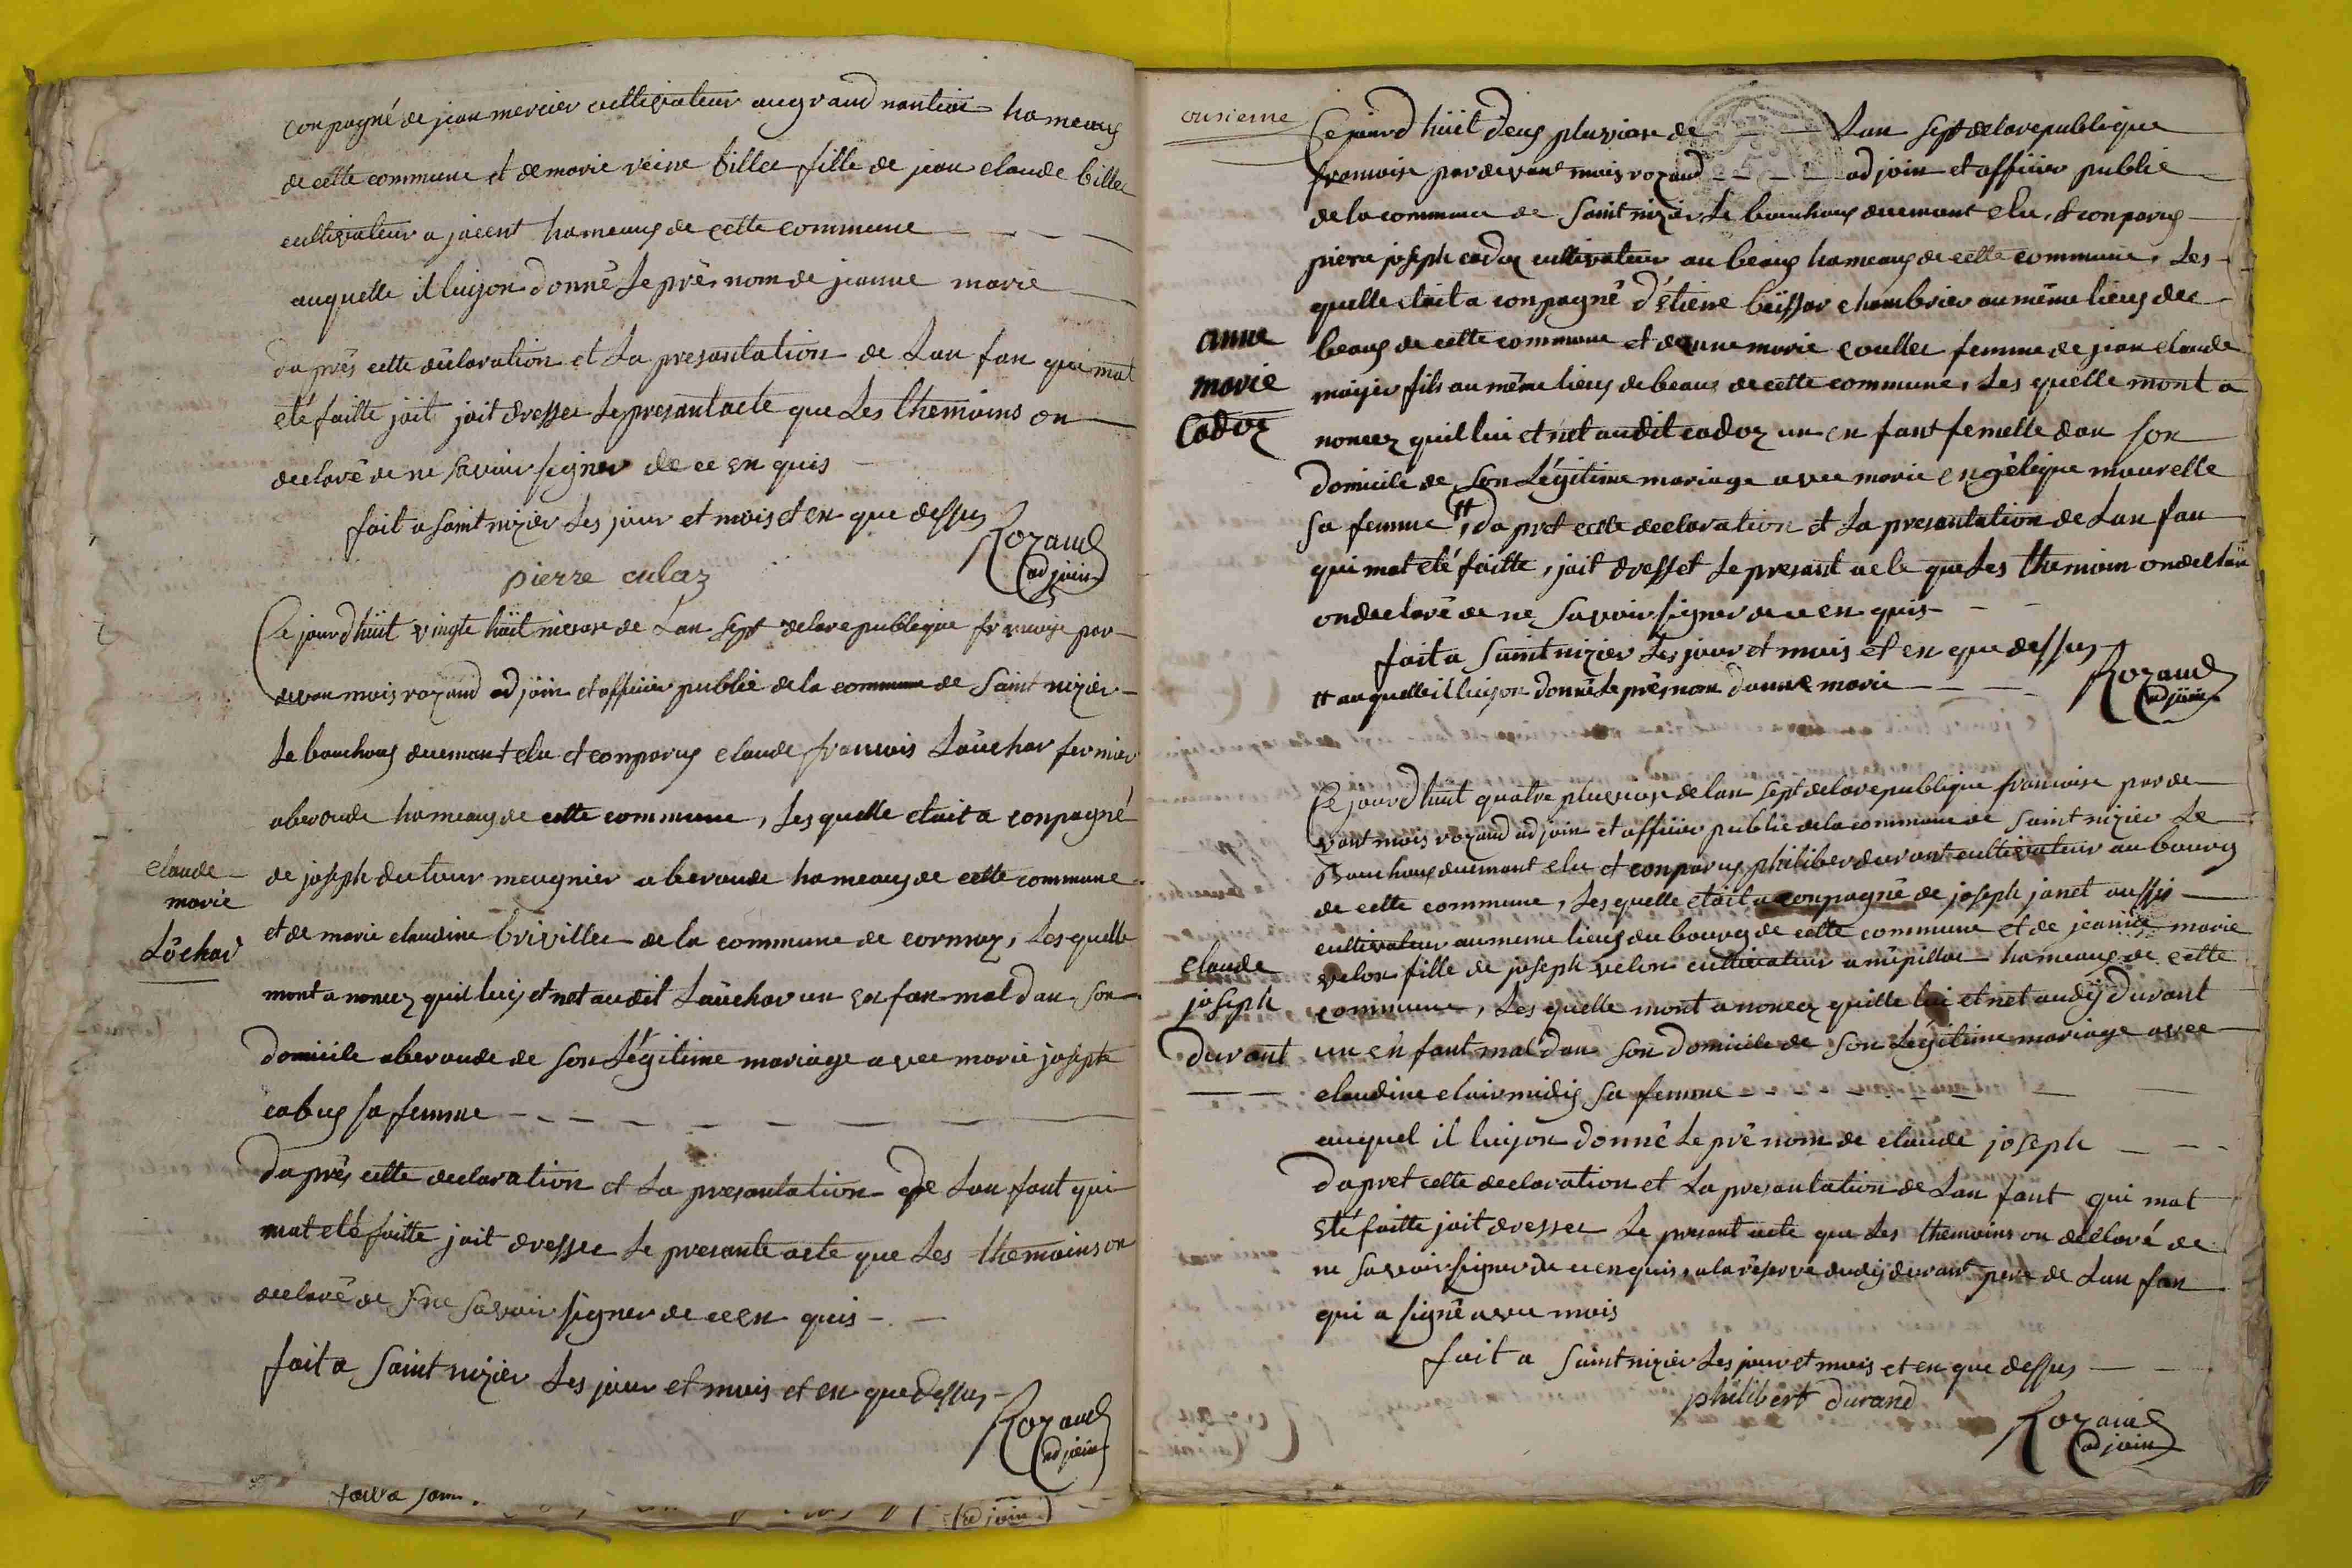 conpagné de jean mercier cultivateur augrand nantiou hameaux
de cette commune et de marie reine billet fille de jean claude billet
cultivateur a jacent hameaux de cette commune
auquelle il luijon donné le prés nom de jeanne marie
da prés cette déclaration et La presantation de Lan fan qui mat
eté faitte jáit jait dresser Le presant acte que Les themoins on
declaré de ne savoir signer de ce en quis
fait a saint nizier Les jour et mois et en que dessus
Rozand
adjoin
pierre culaz
Ce jourd huit vingte huit nivose de Lan sept de la republique francoise par
devan mois rozand adjoin et officier public de la commune de Saint nizier
Le bouchoux duemant elu et conparus claude francois Lauchar fermier
aberoude hameaux de cette commune, Les quelle etait a conpagné
claude
marie
Lôchar
de joseph dutour meugnier a beroude hameaux de cette commune
et de marie claudine brivillet de la commune de cormoz, Les quelle
mont a noncez quil luis et net audit Lauchar un en fan mal dan son
domicile aberoude de son Légitime mariage avec marie josepte
cabus sa femme
Daprés cette declaration et La presantation de Lan fant qui
mat eté faitte jait dresser Le presante acte que Les themoins on
declaré de ne savoir signer de ce en quis
fait a saint nizier Les jour et mois et en que dessus
Rozand
adjoin
fait a sain
adjoin
onsieme
Ce jourd huit deux pluviose de Lan sept de la republique
francoise par devant mois rozand adjoin et officier public
de la commune de Saint nizier Le bouchoux duemant elu, et conparus
piere joseph cadoz cultivateur au beaux hameaux de cette commune, Les
quelle etait a conpagné d'étiene buissor chambrier au même lieux des
anne
marie
Cadoz
beaux de cette commune et danne marie coullet femme de jean claude
moyier fils au même lieux de beaux de cette commune, Les quelle mont a
noncez quil lui et net audit cadoz un en fant femelle dan son
domicile de son Légitime mariage avec marie engélique mourelle
sa femme tt, da pret cette declaration et La presantation de Lan fan
qui mat eté faitte, jait dresset Le presant acte que Les themoin
on declaré de ne savoir signer de ce en quis
fait a saint nizier Les jour et mois et en que dessus
tt auquelle il luijon donné Le prés nom danne marie
Rozand
adjoin
Ce jourd huit quatre pluviose de lan sept de la republique francoise par de
vant mois rozand adjoin et officier public de la commune de saint nizier Le
Bouchoux duemant elu et conparus philiber durant cultivateur au bourg
de cette commune, Les quelle etait a conpagné de joseph janet aussis
cultivateur au meme lieux du bourg de cette commune et de jeanne marie
claude
joseph
durant
velon fille de joseph velon cultivateur a mépillat hameaux de cette
commune, Les quelle mont a noncez quille lui et net audis durant
un en fant mal dan son domicile de son Légitime mariage avec
claudine clairmidis sa femme
auquel il luijon donné Le pré nom de claude joseph
Dapret cette declaration et La presantation de Lan fant qui mat
eté faitte jait dresser Le presant acte que Les themoins on déclaré de
ne savoir signer de ce en quis, a la réserve dudis durant pere de Lan fan
qui a signé avec mois
fait a saint nizier Les jour et mois et en que dessus
philibert durand
Rozand
adjoin